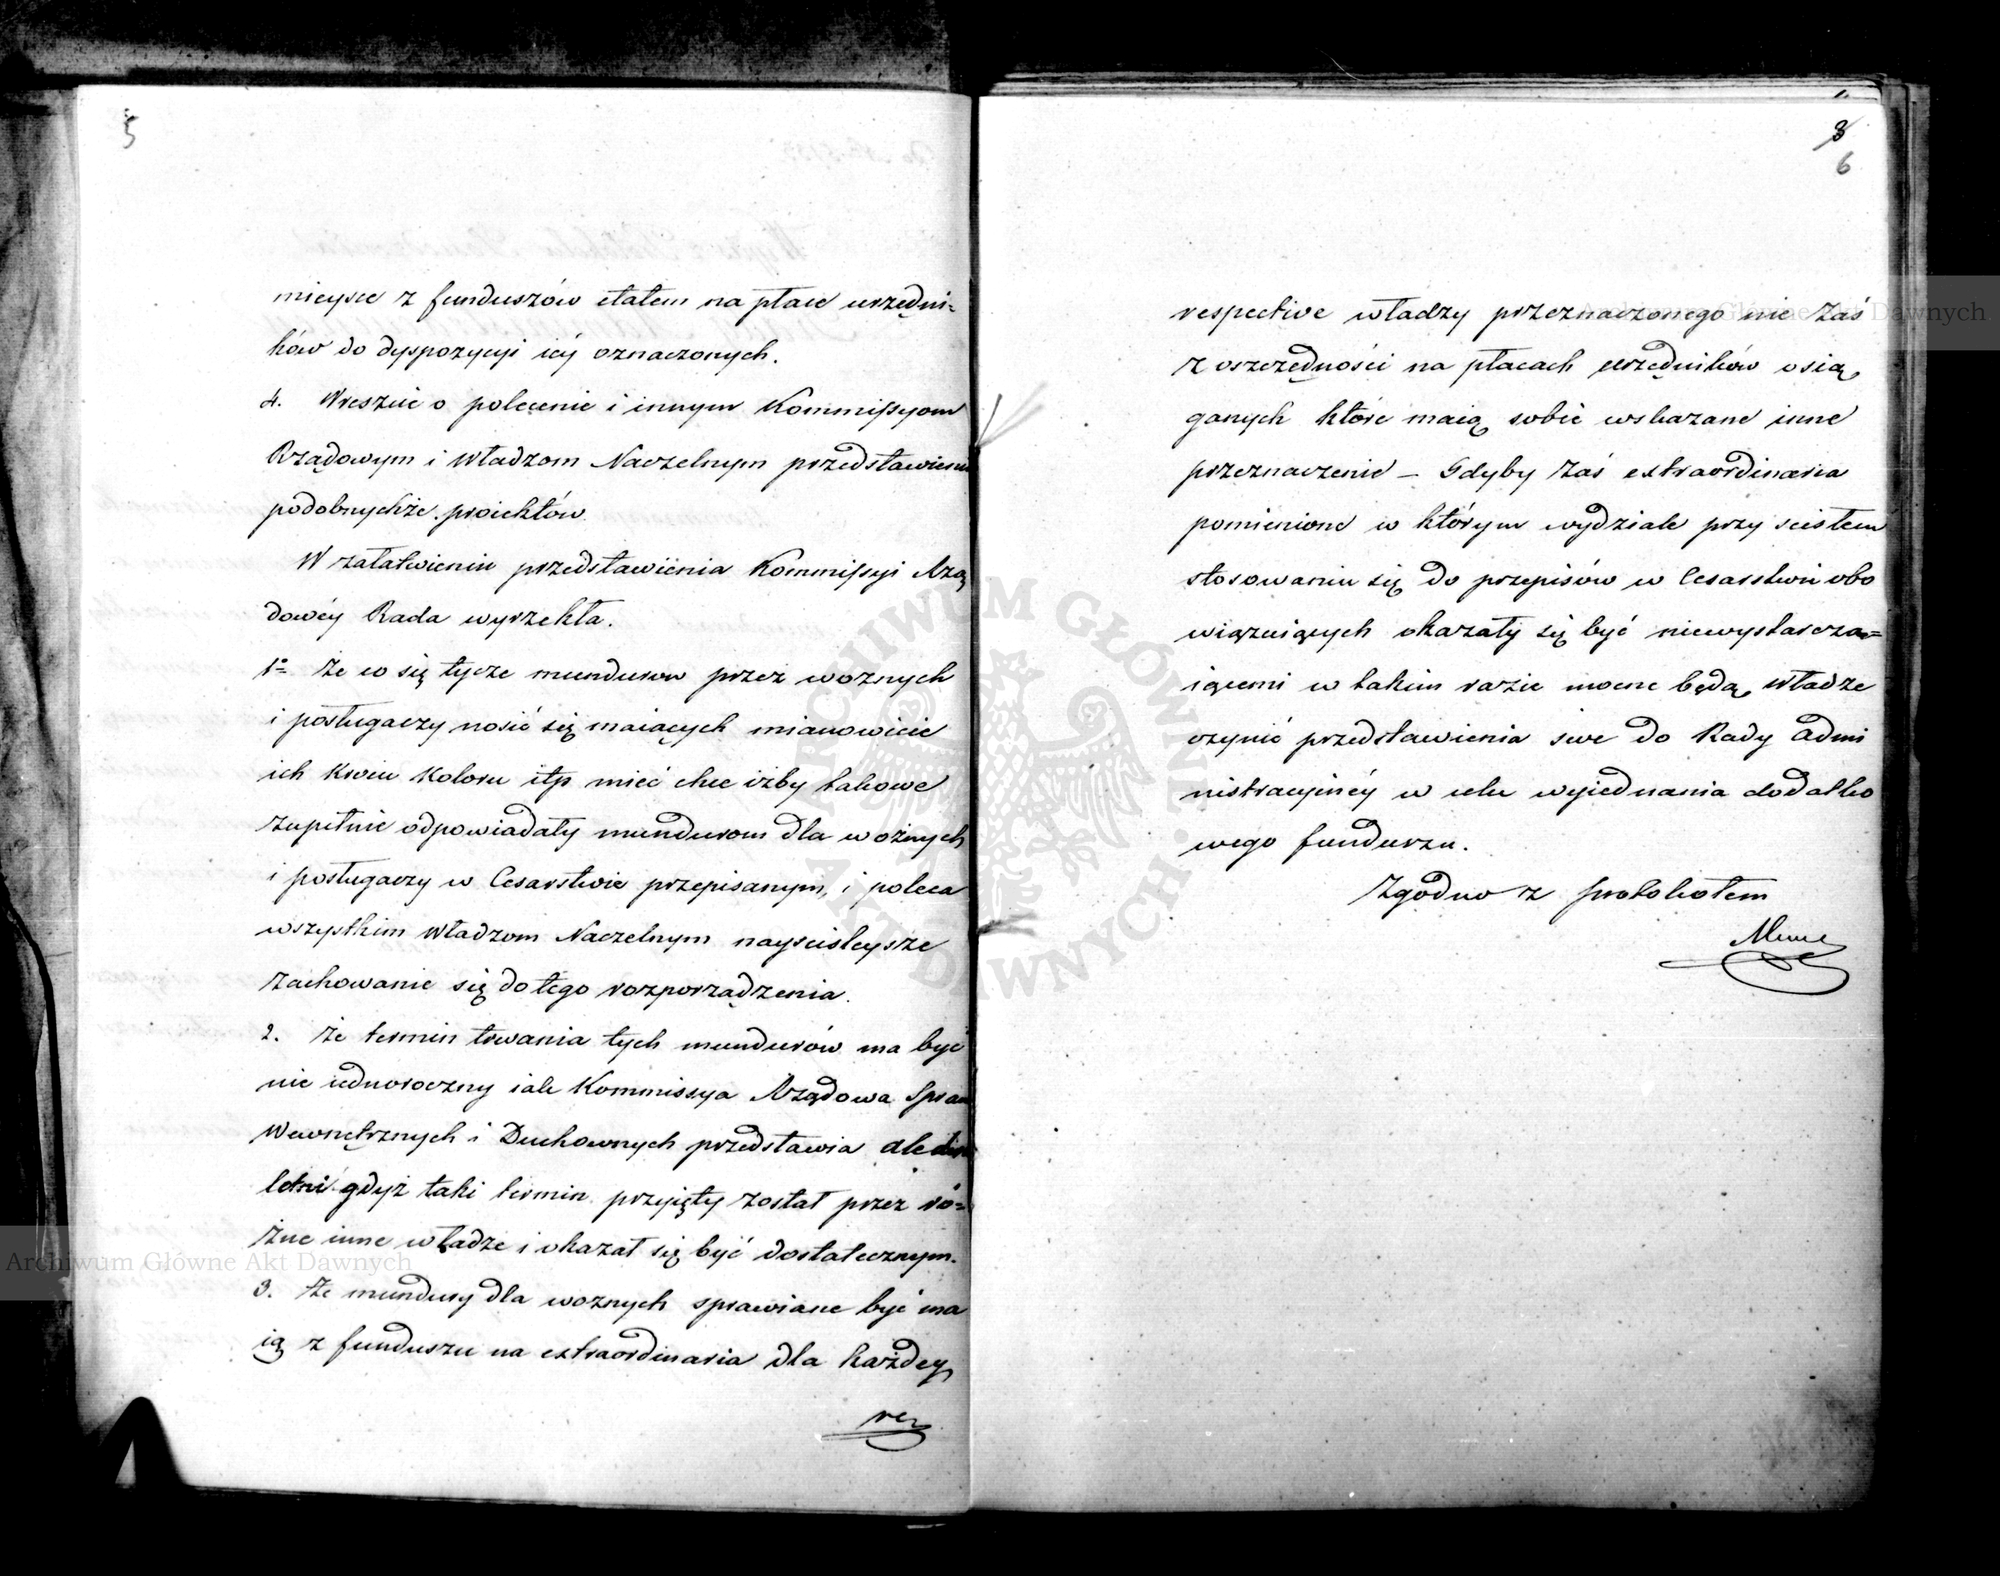 5
mieysce z funduszów etatem na płace urzędni=
ków do dyspozycyi iéy oznaczonych.
4. Wreszcie o polecenie i innym Kommissyom
Rządowym i Władzom Naczelnym przedstawienia
podobnychże proiektów.
W załatwieniu przedstawienia Kommissyi Rzą
dowéy Rada wyrzekła.
1º Że co się tycze mundurów przez woznych
i posługaczy nosić się maiących mianowicie
ich Kroiu Koloru itp mieć chce iżby takowe
zupełnie odpowiadały mundurom dla woźnych
i posługaczy w Cesarstwie przepisanym, i poleca
wszystkim Władzom Naczelnym nayściśleysze
zachowanie się do tego rozporządzenia.
2. Że termin trwania tych mundurów ma być
nie iednoroczny iak Kommissya Rządowa Spraw
Wewnętrznych i Duchownych przedstawia ale dwu
letni gdyż taki termin przyięty został przez ró=
żne inne władze i okazał się być dostatecznym.
3. Że mundury dla woznych sprawiane być ma
ią z funduszu na extraordinaria dla każdey
res
8
6
respective władzy przeznaczonego nie zaś
z oszczędności na płacach urzędników osią
ganych które maią sobie wskazane inne
przeznaczenie — Gdyby zaś extraordinaria
pomienione w którym wydziale przy scisłem
stosowaniu się do przepisów w Cesarstwie obo
wiązuiących okazały się być niewystarcza=
iącemi w takim razie mocne będą Władze
czynić przedstawienia swe do Rady Admi
nistracyinéy w celu wyiednania dodatko
wego funduszu.
Zgodno z protokołem
Archiwum Główne Akt Dawnych
Archiwum Główne Akt Dawnych
ARCHIWUM GŁÓWNE AKT DAWNYCH